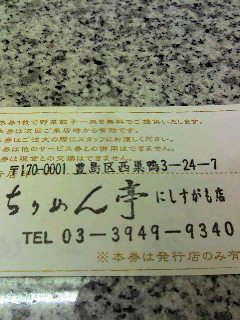 本券1枚で野菜餃子一皿を無料でご提供いたします。
本券は次回ご来店時から有効です。
本券はご注文の際にスタッフにお渡しください。
本券は他のサービス券との併用はできません。
本券は現金との交換はできません。
〒170-0001 豊島区西巣鴨3-24-7
ちりめん亭 にしすがも店
TEL 03-3949-9340
※本券は発行店のみ有